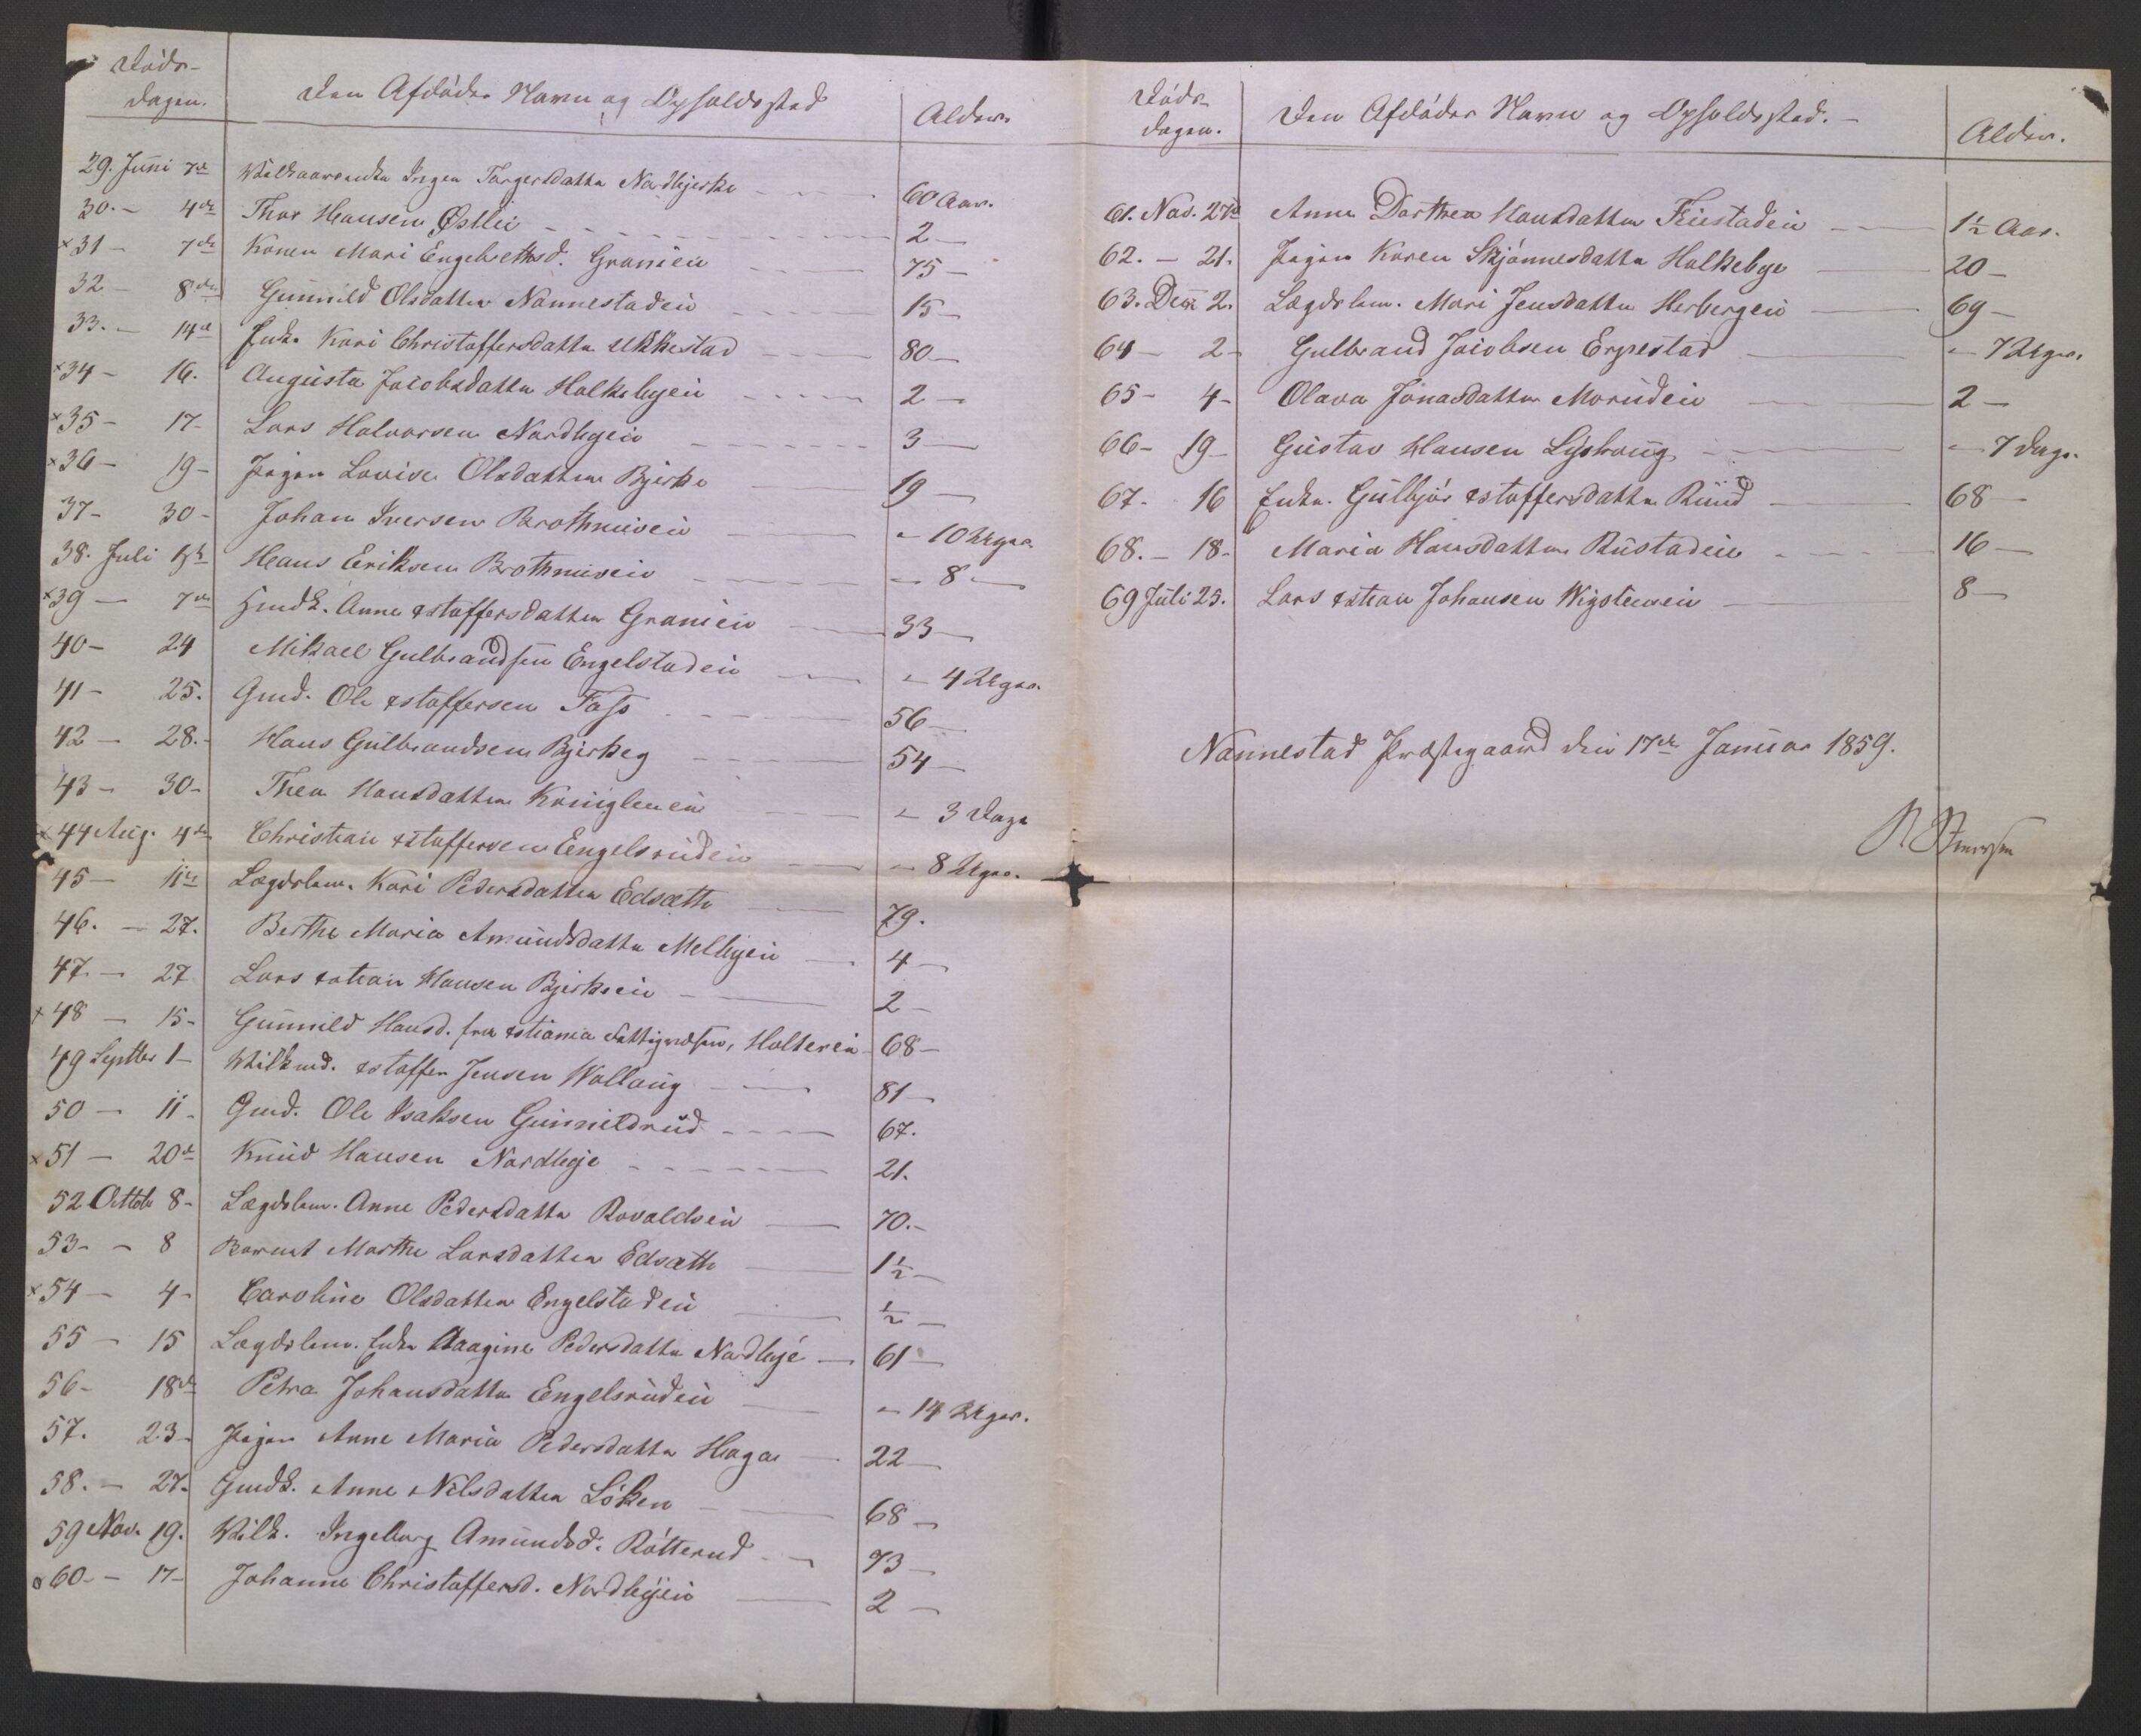 Døds-
dagen.
Den Afdødes Navn og Opholdssted
Alder.
29. Juni 7de Vilkaarsenke Ingen Torgersdatter Nordbjerke 60 Aar.
30. - 4de Thor Hansen Østlie 2 -
x31 - 7de Konen Mari Engebrethsd. Granien 75 -
32 - 8de Gunnild Olsdatter Nannestadeie 15 -
33. - 14de Enke Kari Christoffersdatter Ukkestad 80 -
x34 - 16. Augusta Jacobsdatter Holkebyeie 2 -
x35 - 17 - Lars Halvorsen Nordbyeie 3 -
x36 - 19 - Pigen Lovise Olsdatter Bjerke 19 -
37 - 30 - Johan Iversen Brothnuseie - 10 Uger.
38. Juli Hans Eriksen Brothnuseie - 8 -
x39 - 7de Gmdk. Anne xstoffersdatter Granien 33 -
40 - 24 Mikael Gulbrandsen Engelstadeie - 4 Uger.
41 - 25. Gmd. Ole xstoffersen Foss 56 -
42 - 28. - Hans Gulbrandsen Bjerkeg 54 -
43 - 30 - Thea Hansdatter Kringleneie - 3 Dage
x44 Aug. 4de Christian xstoffersen Engelsrudeie - 8 Uger.
45 - 11te Lægdslem. Kari Pedersdatter Edsæth 79.
46. - 27. Berthe Maria Amundsdatter Melbyeie 4 -
47. - 27 Lars xstian Hansen Bjerkeeie 2 -
x48 - 15 - Gunnild Hansd. fra xstiania Fattigvæsen, Holtereie 68 -
49 Septbr 1 - Vilkmd. xstoffer Jensen Wollaug 81 -
50 - 11 - Gmd. Ole Isaksen Gunnildrud 67.
x51 - 20de Knud Hansen Nordbye 21.
52 Octob 8 - Lægdslem. Anne Pedersdatter Rovaldseie 70. -
53 - - 8 Barnet Marthe Larsdatter Edsæth 1½ -
x54 - 4 - Caroline Olsdatter Engelstadeie ½ -
55 - 15 Lægdslem. Enke Aaagine Pedersdatter Nordbye 61 -
56 - 18de Petra Johansdatter Engelsrudeie - 14 Uger.
57. 23 - Pigen Anne Maria Pedersdatter Haga 22 -
58. - 27. Gmdk. Anne Nilsdatter Løken 68 -
59 Nov. 19. Vilk. Ingeborg Amundsd. Røtterud 73 -
60 - - 17 - Johanne Christoffersd. Nordbyeie 2 -
Døds-
dagen.
Den Afdødes Navn og Opholdssted. -
Alder.
61. Nov. 27de Anne Dorthea Hansdatter Feiestadeie 1½ Aar.
62. - 21. Pigen Karen Skjønnesdatter Holkebye 20 -
63. Decbr 2. Lægdslem. Mari Jensdatter Herbergeie 69 -
64 - 2 - Gulbrand Jacobsen Erpestad - 7 Uger.
65 - 4 - Olava Jonasdatter Morudeie 2 -
66 - 19 - Gustav Hansen Lyshaug - 7 Dage.
67. 16 Enke. Gulbjør xstoffersdatter Rund 68 -
68. - 18 - Maria Hansdatter Rustadeie 16 -
69 Juli 25. Lars xstian Johansen Wigsteneie 8 -
Nannestad Præstegaard den 17de Januar 1859.